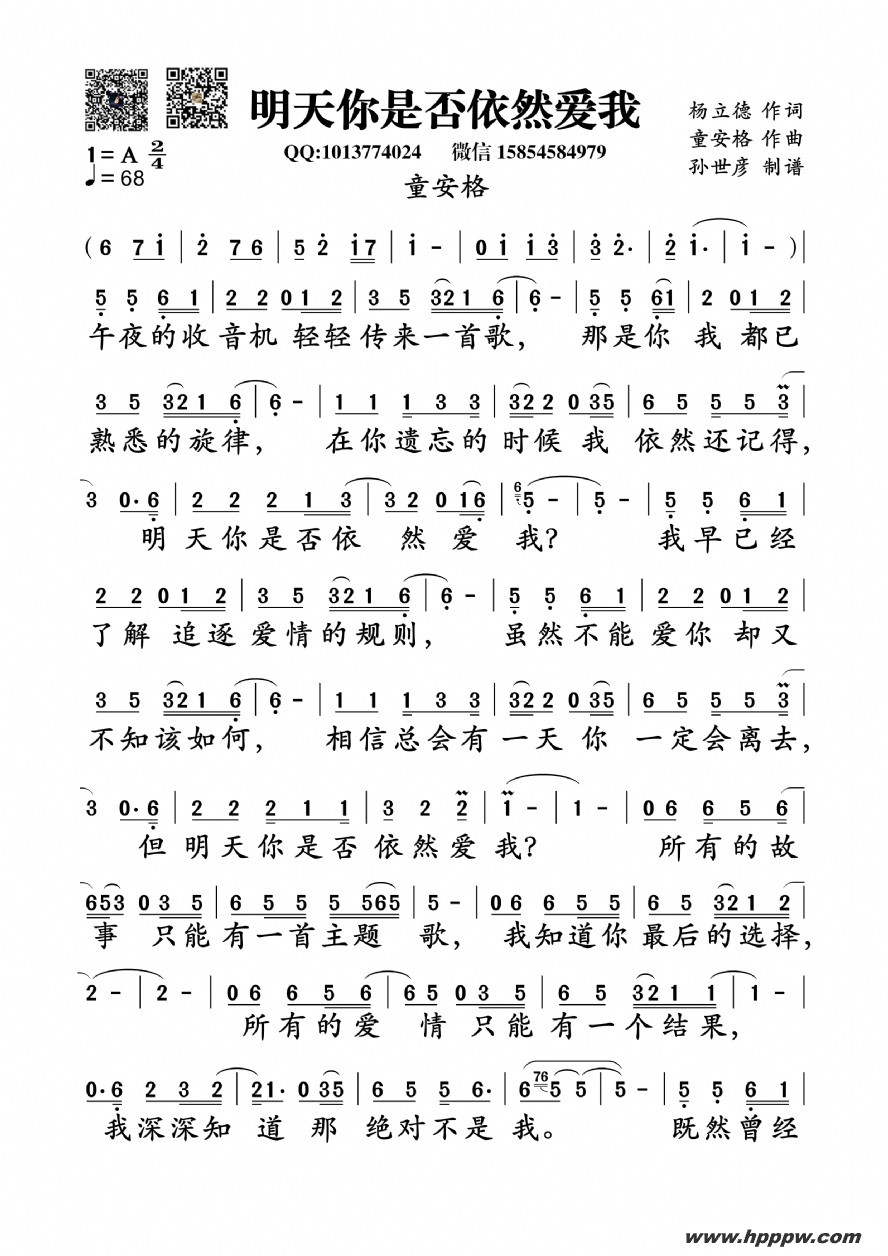 明天你是否依然爱我
杨立德 作词
童安格 作曲
孙世彦 制谱
1=A 2/4
♩=68
QQ:1013774024 微信 15854584979
童安格
( 6 7 i | 2 7 6 | 5 2 i 7 | i - | 0 i i 3 | 3 2· | 2 i· | i - ) |
5 5 6 1 | 2 2 0 1 2 | 3 5 3 2 1 6 | 6 - | 5 5 6 1 | 2 0 1 2
午夜的收音机 轻轻传来一首歌, 那是你 我 都已
3 5 3 2 1 6 | 6 - | 1 1 1 3 3 | 3 2 2 0 3 5 | 6 5 5 5 3
熟悉的旋律, 在你遗忘的时候我 依然还记得,
3 0· 6 | 2 2 2 1 3 | 3 2 0 1 6 | 6 5 - | 5 - | 5 5 6 1
明 天你是否依 然 爱 我? 我早已经
2 2 0 1 2 | 3 5 3 2 1 6 | 6 - | 5 5 6 1 | 2 2 0 1 2
了解 追逐爱情的规则, 虽然不能爱你 却又
3 5 3 2 1 6 | 6 - | 1 1 1 3 3 | 3 2 2 0 3 5 | 6 5 5 5 3
不知该如何, 相信总会有一天你 一定会离去,
3 0· 6 | 2 2 2 1 1 | 3 2 2 | 1 - | 1 - | 0 6 6 5 6
但 明天你是否 依然爱 我? 所有的故
6 5 3 0 3 5 | 6 5 5 5 5 6 5 | 5 - | 0 6 6 5 5 | 6 5 3 2 1 2
事 只能有一首主题 歌, 我知道你最后的选择,
2 - | 2 - | 0 6 6 5 6 | 6 5 0 3 5 | 6 5 3 2 1 1 | 1 -
所有的爱 情只能有一个结果,
0· 6 2 3 2 | 2 1· 0 3 5 | 6 5 5 6· | 6 7 6 5 5 | 5 - | 5 5 6 1
我深深知 道 那 绝对不是 我。 既然曾经
www.hpppw.com